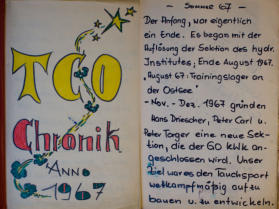 TCO
Chronik
ANNO
1967
- Sommer 67 -
Der Anfang, war eigentlich
ein Ende. Es begann mit der
Auflösung der Sektion des hydr.
Institutes; Ende August 1967.
"August 67: Trainingslager an
der Ostsee"
- Nov. - Dez. 1967 gründen
Hans Driescher, Peter Carl u.
Peter Targer eine neue Sek-
tion, die der GO KWH an-
geschlossen wird. Unser
Ziel war es den Tauchsport
wettkampfmäßig aufzu
bauen u. zu entwickeln.